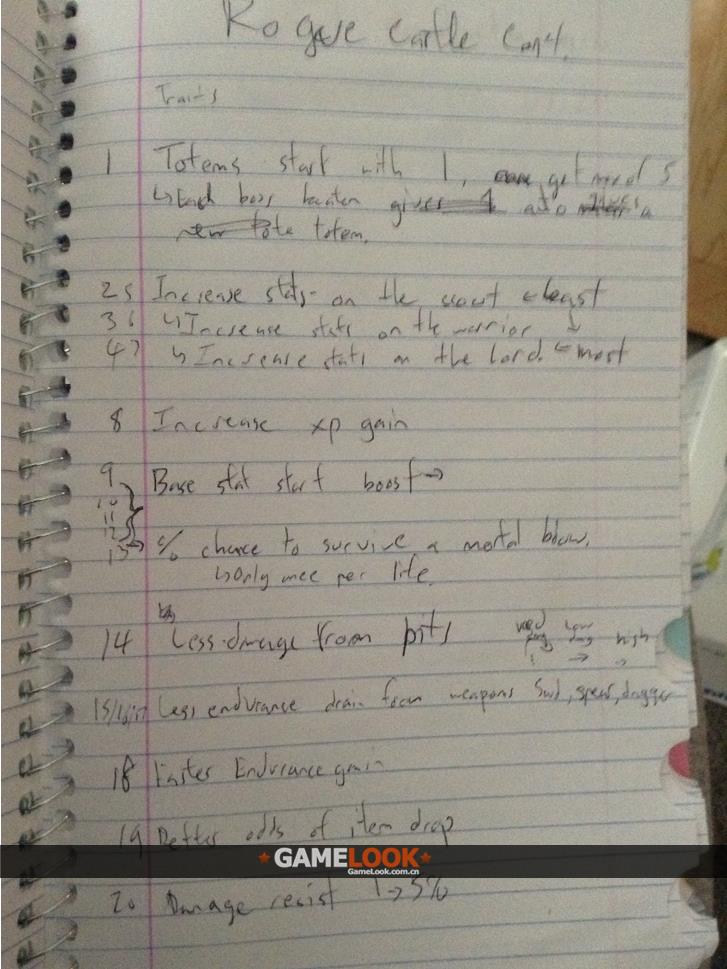 Rogue Castle Cont.
Traits
1 Totems start with 1, can get max of 5
↳ Each boss beaten gives a
totem.
25 Increase stats - on the scout ← least
36 ↳ Increase stats on the warrior ↓
47 ↳ Increase stats on the lord. ← most
8 Increase xp gain
9 Base stat start boost →
10
11
12
13 → % chance to survive a mortal blow.
↳ Only once per life.
14 Less damage from pits
high
15/16/17 Less endurance drain from weapons Swd, spear, dagger
18 Faster Endurance gain
19 Better odds of item drop
GAMELOOK
GameLook.com.cn
20 Damage resist 1→5%